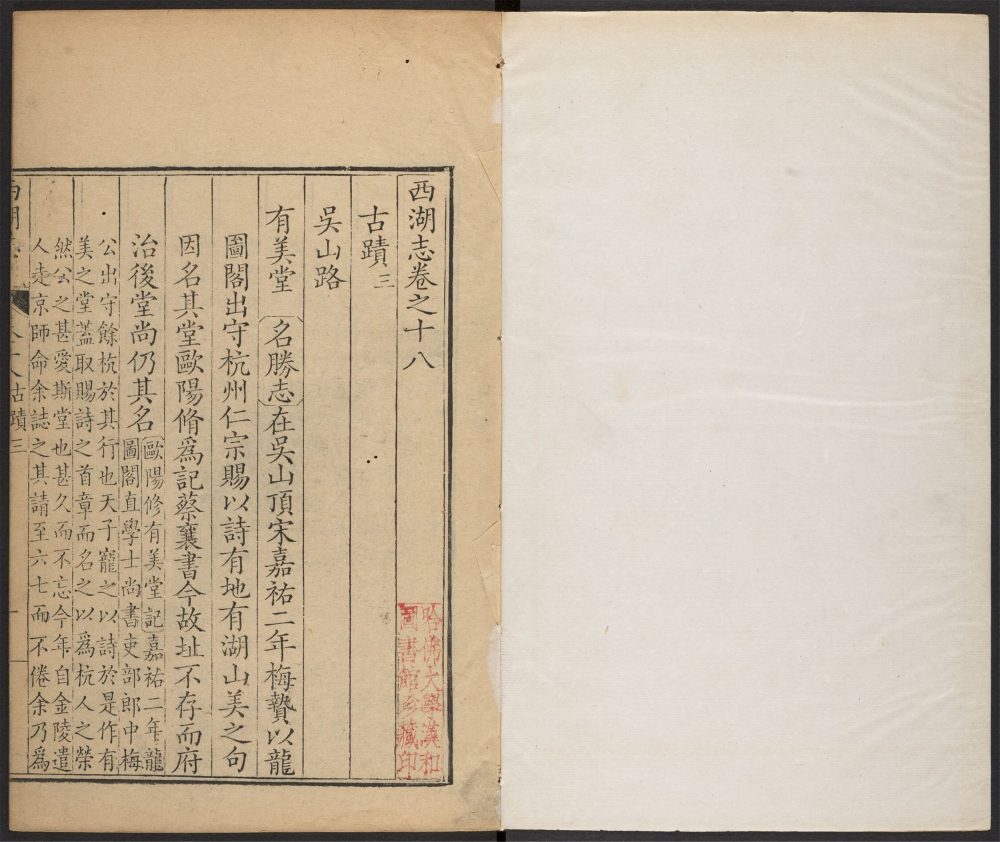 西湖志卷之十八
古蹟三
吳山路
有美堂 名勝志在吳山頂宋嘉祐二年梅贄以龍
圖閣出守杭州仁宗賜以詩有地有湖山美之句
因名其堂歐陽脩爲記蔡襄書今故址不存而府
治後堂尚仍其名歐陽修有美堂記嘉祐二年龍
圖閣直學士尚書吏部郎中梅
公出守餘杭於其行也天子寵之以詩於是作有
美之堂蓋取賜詩之首章而名之以爲杭人之榮
然公之甚愛斯堂也甚久而不忘今年自金陵遣
人走京師命余誌之其請至六七而不倦余乃爲
古蹟三
哈佛大學漢和
圖書館珍藏印